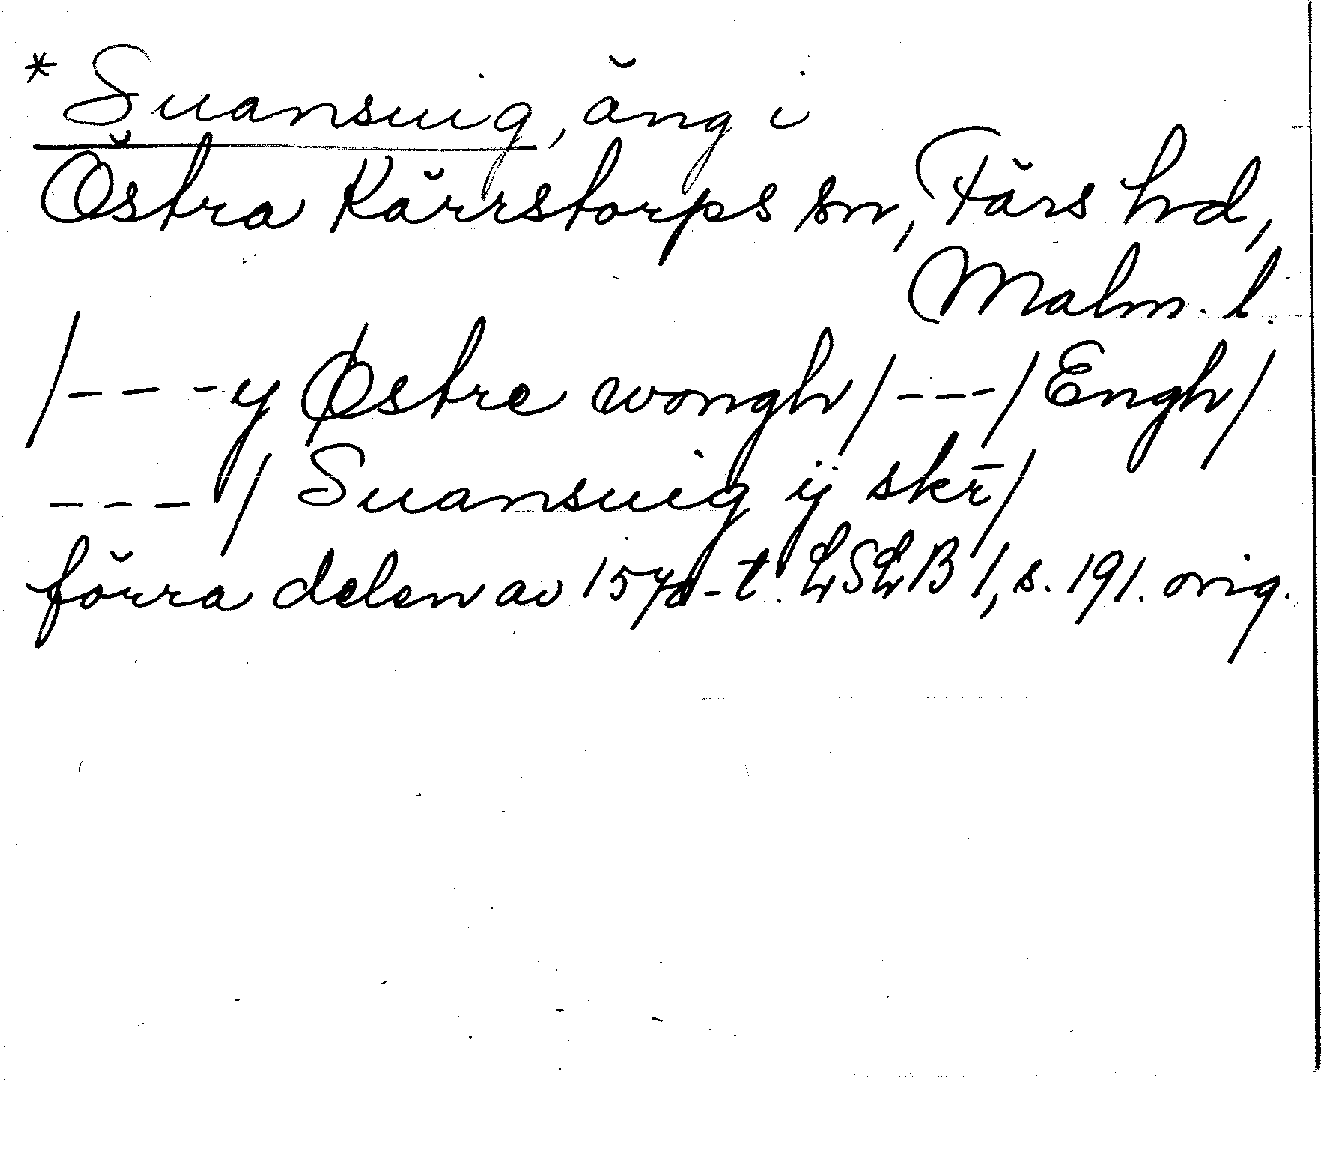 * Suansuig, äng i
Östra Kärrstorps sn, Färs hd,
Malm. l.
/- - - y Østre wongh/ - - -/ Engh/
- - - / Suansuig ÿ skr̄/
förra delen av 1570-t. LSLB 1, s. 191. orig.